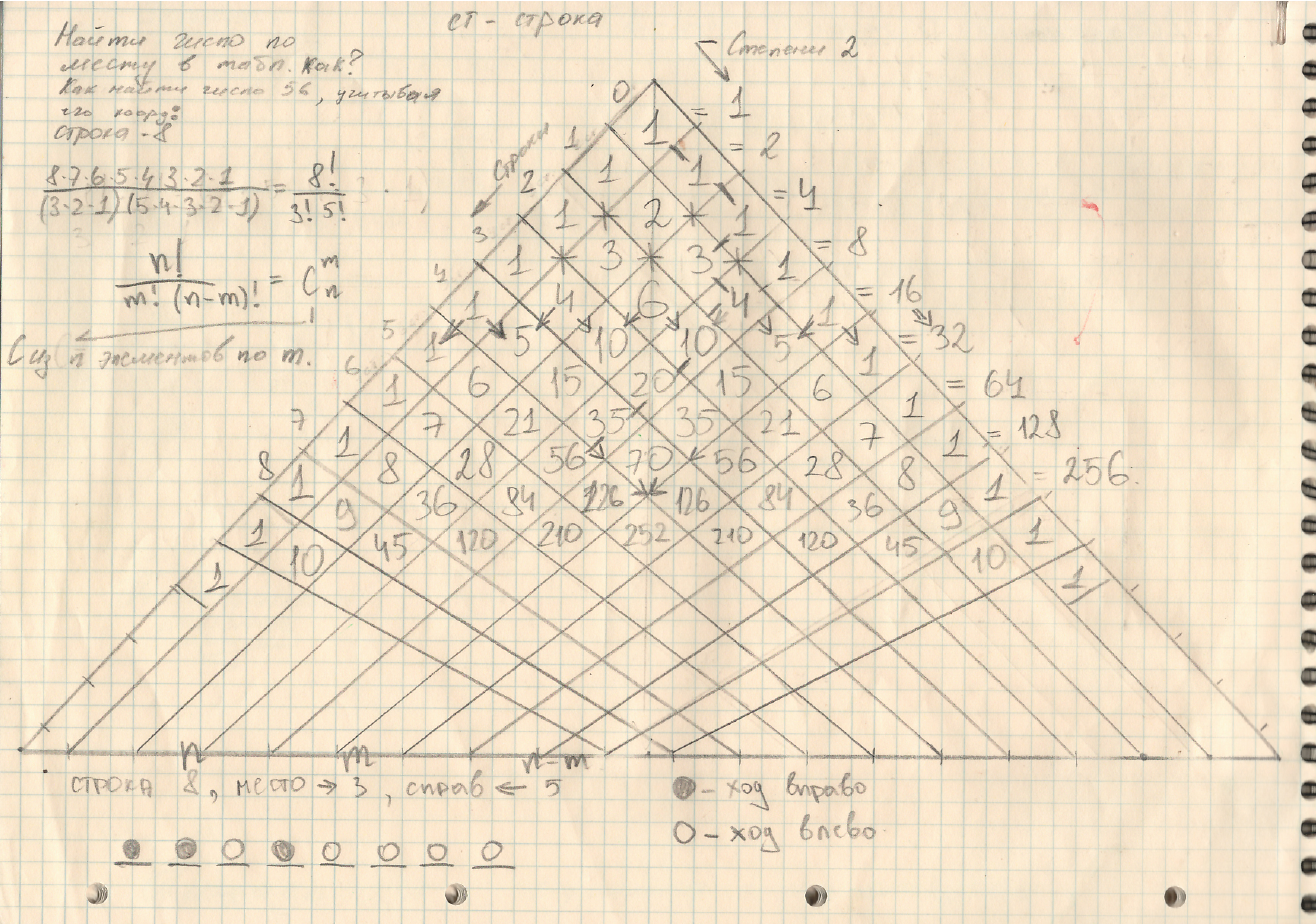 ст - строка
Найти число по
месту в табл. как?
Как найти число 56, учитывая
его коорд:
строка - 8
8·7·6·5·4·3·2·1 / (3·2·1)(5·4·3·2·1) = 8! / 3! 5!
n! / m! (n-m)! = C_n^m
C из n элементов по m.
Степени 2
строки
0 1 = 1
1 1 1 = 2
2 1 2 1 = 4
3 1 3 3 1 = 8
4 1 4 6 4 1 = 16
5 1 5 10 10 5 1 = 32
6 1 6 15 20 15 6 1 = 64
7 1 7 21 35 35 21 7 1 = 128
8 1 8 28 56 70 56 28 8 1 = 256.
1 9 36 84 126 126 84 36 9 1
1 10 45 120 210 252 210 120 45 10 1
n m n-m
строка 8, место → 3, справ ← 5
- ход вправо
- ход влево